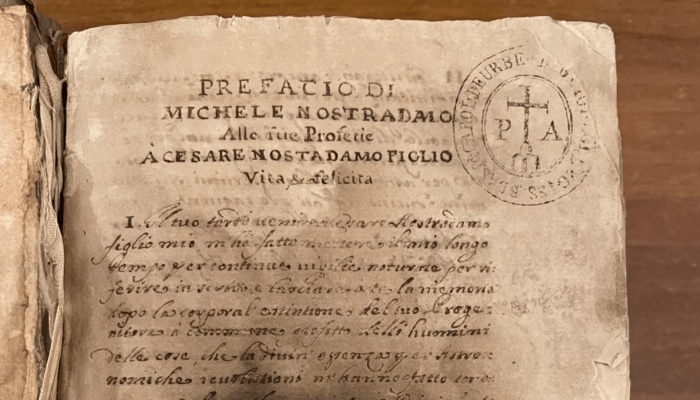 PREFACIO DI
MICHELE NOSTRADMO
Alle sue Profetie
À CESARE NOSTADAMO FIGLIO
Vita & felicita
P A
Il tuo tardo uenire Cesare Nostradamo
figlio mio m'ha fatto mettere il mio longo
tempo per continue uigilie noturne per ri
ferire in scritto e lasciare a te la memoria
dopo la corporal estintione del tuo Proge
nitore à commune profitto delli huomini
delle cose, che la diuin essenza per Astro
nomiche reuolutioni m'hanno fatto